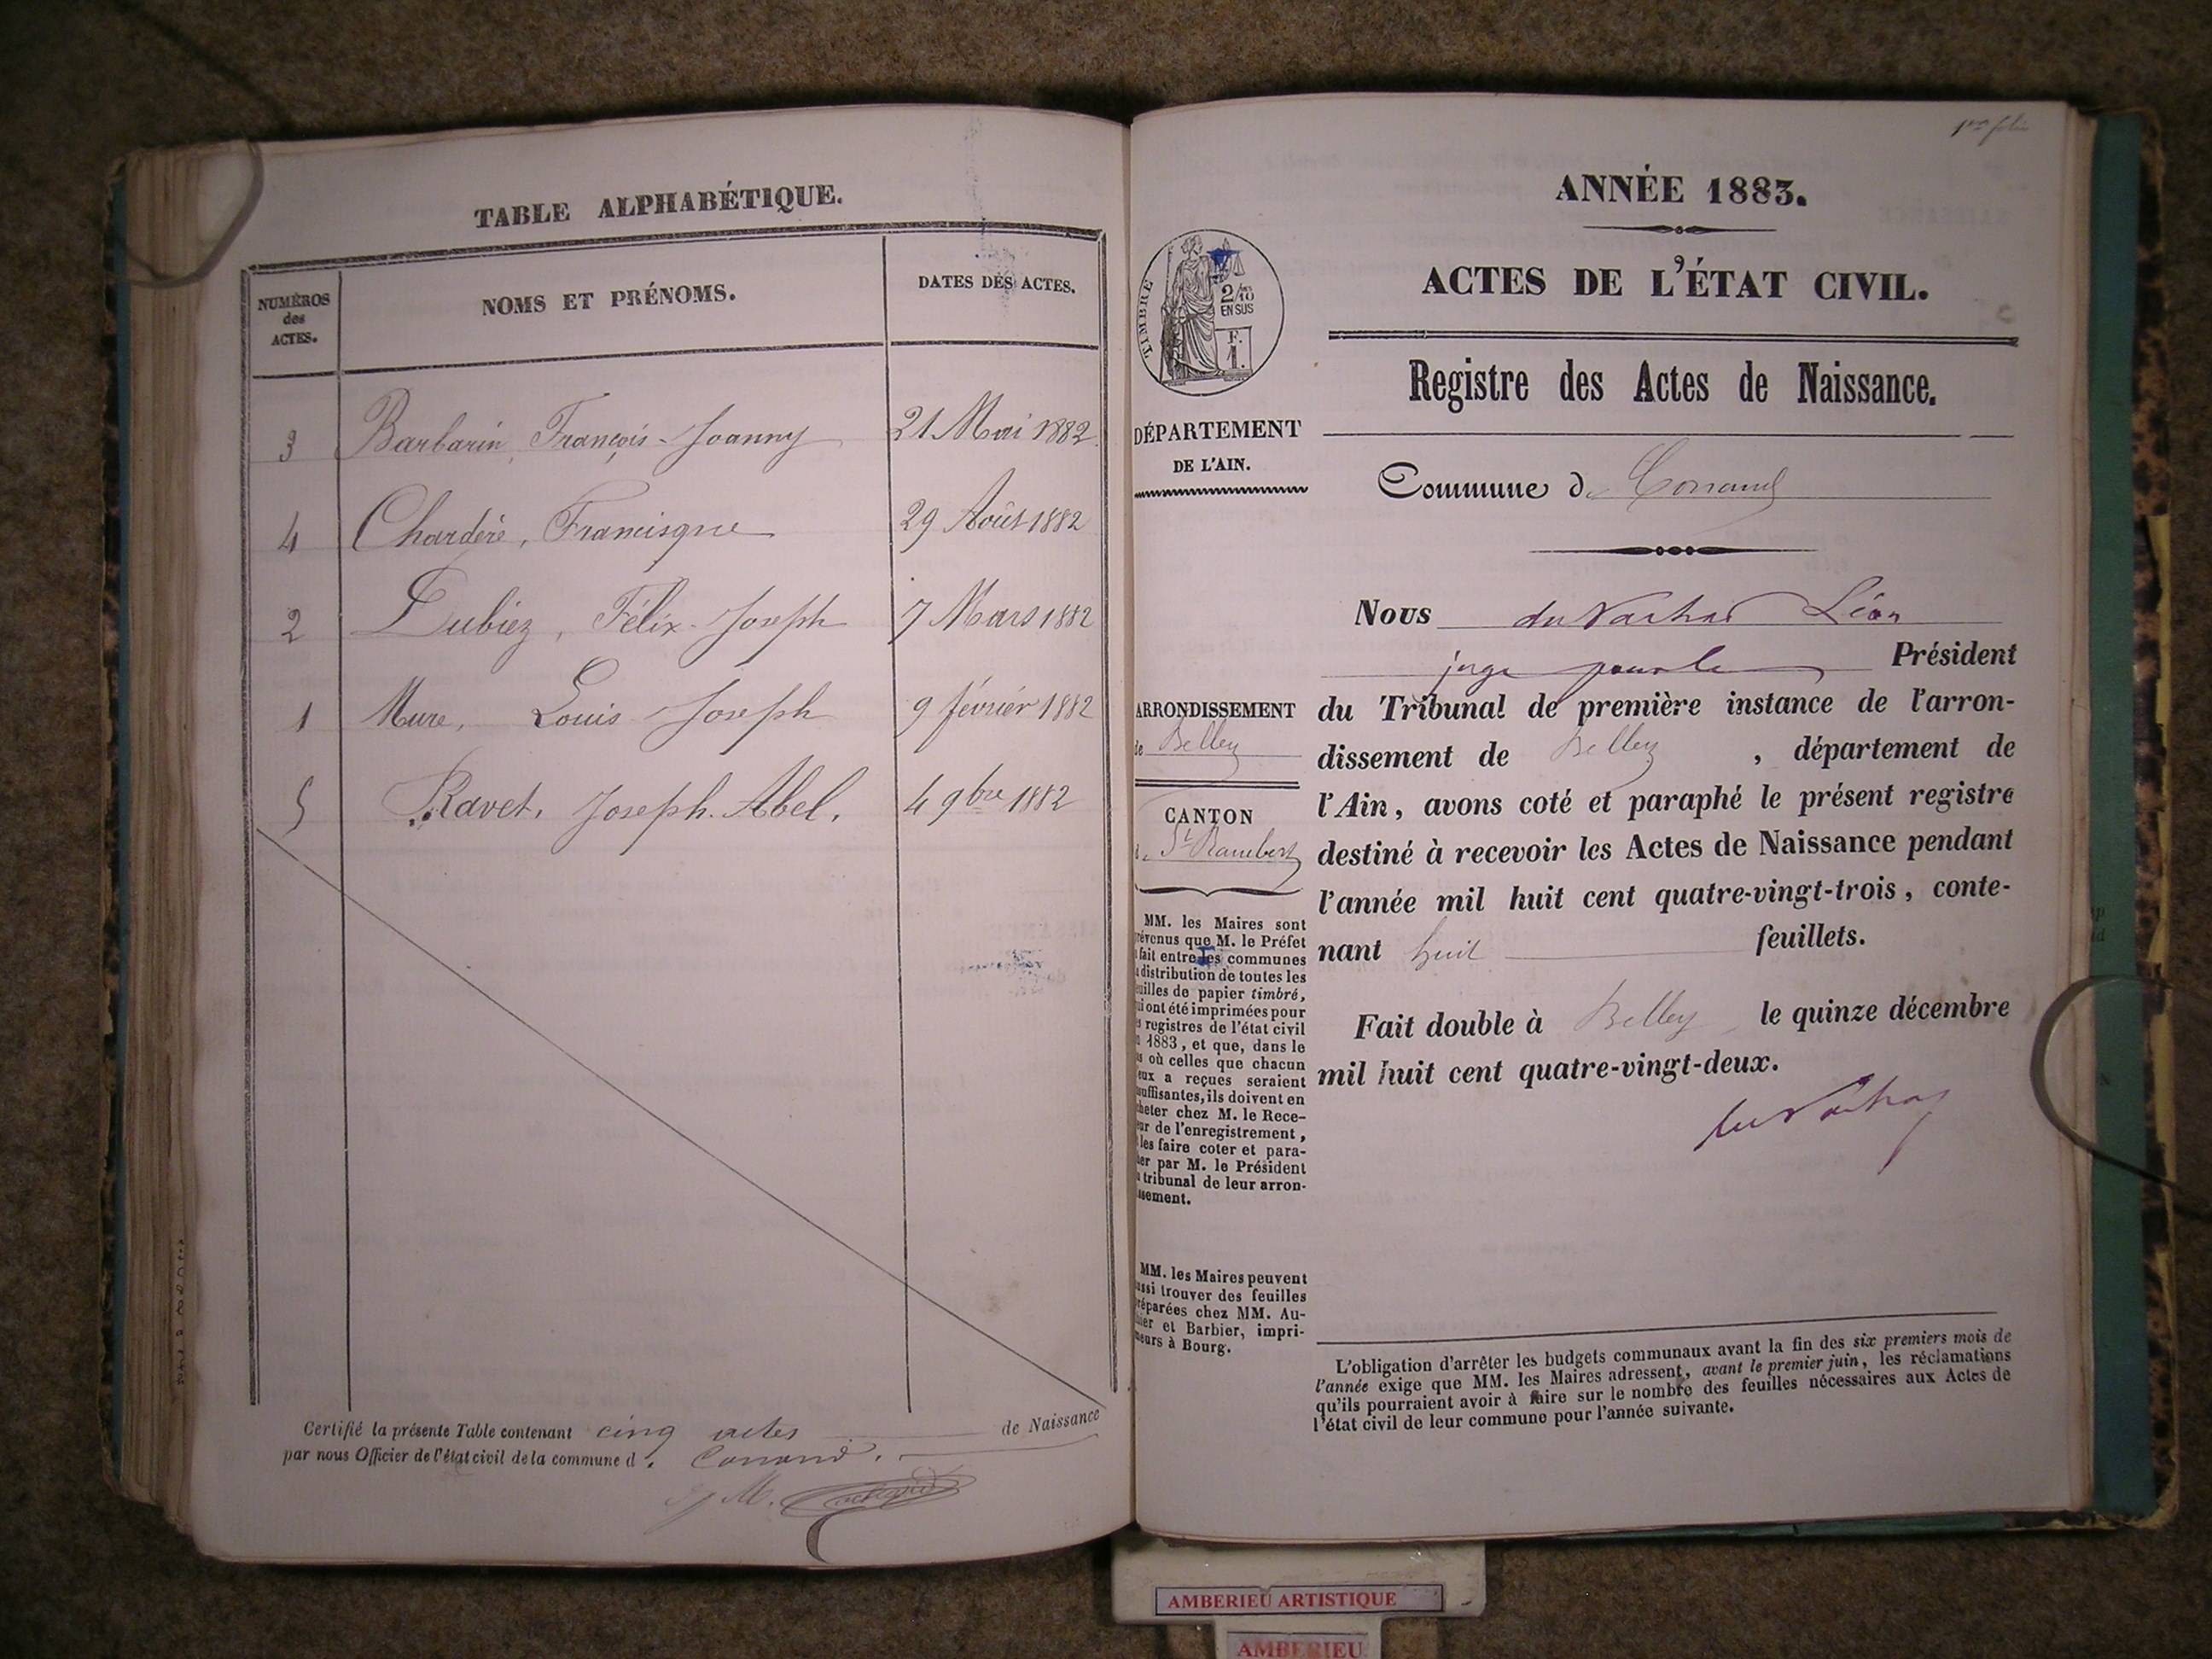 TABLE ALPHABÉTIQUE.
NUMÉROS
des
ACTES.
NOMS ET PRÉNOMS.
DATES DES ACTES.
3 Barbarin, François-Joanny 21 Mai 1882
4 Charderé, Francisque 29 Août 1882
2 Dubiez, Félix-Joseph 7 Mars 1882
1 Mure, Louis Joseph 9 février 1882
5 Ravet, Joseph-Abel. 4 9bre 1882
Certifié la présente Table contenant cinq actes de Naissance
par nous Officier de l'état civil de la commune d. Conand.
1er folio
ANNÉE 1883.
ACTES DE L'ÉTAT CIVIL.
Registre des Actes de Naissance.
TIMBRE
2/10
EN SUS
F.
1.
DÉPARTEMENT
DE L'AIN.
Commune de Conand
Nous Léon
juge pour le Président
du Tribunal de première instance de l'arron-
dissement de Belley, département de
l'Ain, avons coté et paraphé le présent registre
destiné à recevoir les Actes de Naissance pendant
l'année mil huit cent quatre-vingt-trois, conte-
nant huit feuillets.
Fait double à Belley le quinze décembre
mil huit cent quatre-vingt-deux.
ARRONDISSEMENT
de Belley
CANTON
de St Rambert
MM. les Maires sont
révenus que M. le Préfet
fait entre les communes
distribution de toutes les
uilles de papier timbré,
ui ont été imprimées pour
s registres de l'état civil
1883, et que, dans le
s où celles que chacun
eux a reçues seraient
uffisantes, ils doivent en
cheter chez M. le Rece-
eur de l'enregistrement,
les faire coter et para-
her par M. le Président
tribunal de leur arron-
ssement.
MM. les Maires peuvent
ussi trouver des feuilles
réparées chez MM. Au-
hier et Barbier, impri-
meurs à Bourg.
L'obligation d'arrêter les budgets communaux avant la fin des six premiers mois de
l'année exige que MM. les Maires adressent, avant le premier juin, les réclamations
qu'ils pourraient avoir à faire sur le nombre des feuilles nécessaires aux Actes de
l'état civil de leur commune pour l'année suivante.
AMBERIEU ARTISTIQUE
AMBERIEU